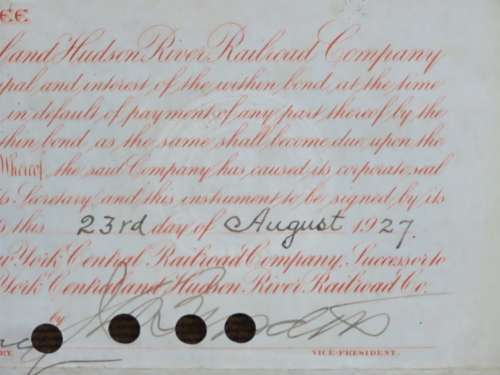 EE
l and Hudson River Railroad Company
ipal and interest of the within bond, at the time
in default of payment of any part thereof by the
thin bond, as the same shall become due upon the
Whereof, the said Company has caused its corporate seal
ts Secretary, and this instrument to be signed by its
s this 23rd day of August 1927.
w York Central Railroad Company, Successor to
York Central and Hudson River Railroad Co.
by
RY. VICE-PRESIDENT.